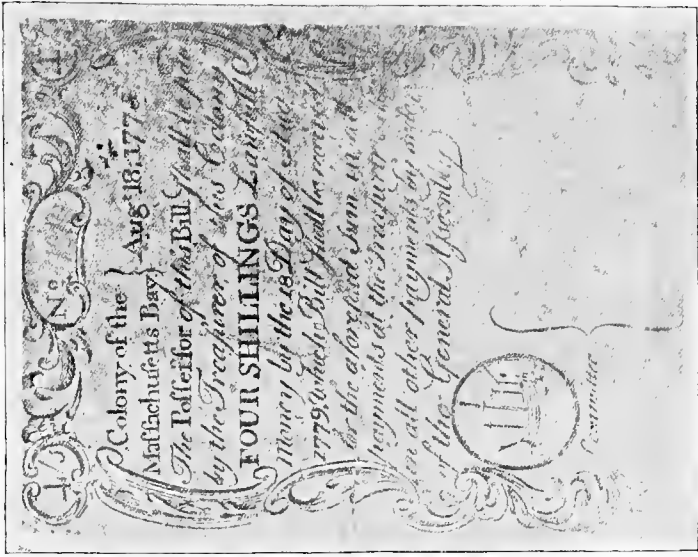 No
Colony of the } Aug.t 18.1776
Maſſachuſetts Bay
The Poſſeſſor of this Bill ſhall be paid
by the Treaſurer of this Colony
FOUR SHILLINGS Lawfull
Money by the 18 Day of Aug
1779, which Bill ſhall be received
for the aforeſaid Sum in all
payments at the Treaſury and
in all other Payments by order
of the General Aſſembly
Committee